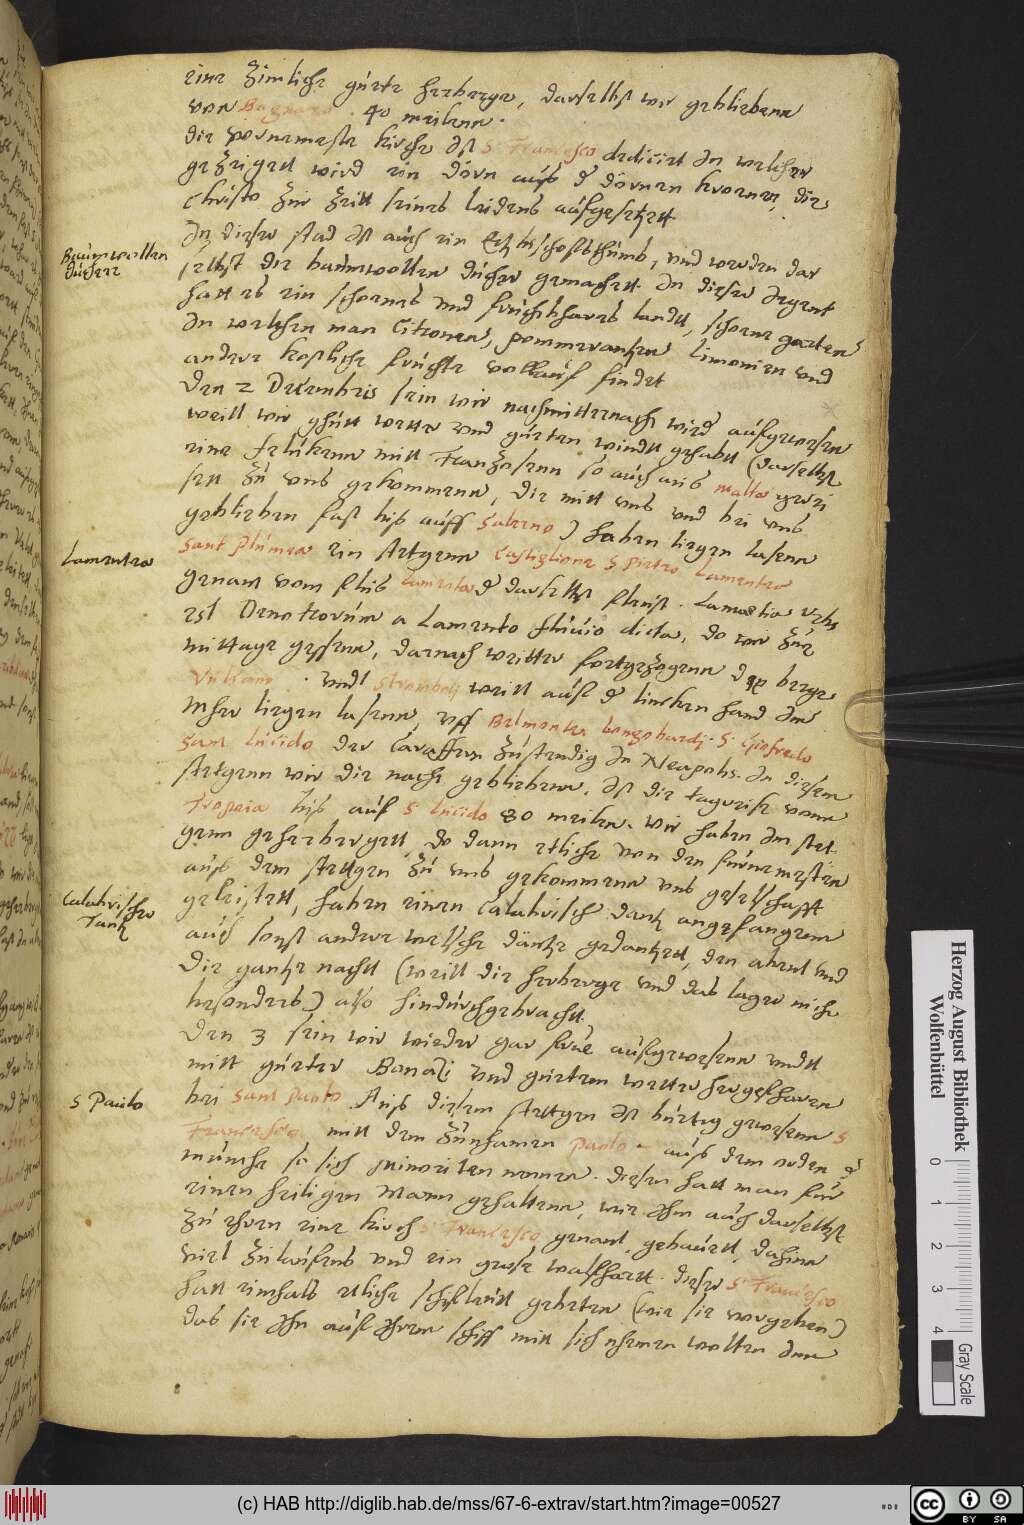 eine zimliche guete herberge, daselbst wir gebliebenn
von Bagnara . 40 meilenn .
die vornemeste kirche ist S Francesco dedicirt in welcher
gezeigett wird ein dorn auß der dörnen kronen, die
Christo zur zeitt seines leidens aufgesetzett
In dieser stad ist auch ein Ertzbischofsthumb, und werden dar
selbst die baumwollen düecher gemachett. In dieser Jegent
hatt es ein schoenes und fruchtbares landt, schoene garten
In welchen man Citronen, pommerantzen limonien und
andere kostliche früchte vollauf findet
Den 2 Decembris sein wir nach mitternacht wieder aufgewesen
weill wir guett wetter und gueten windt gehabtt (daselbst
eine felukenn mitt Franzosenn so auch aus Malta gewe
sett zu uns gekommenn, die mitt uns und bei uns
geblieben fast biß auff Salerno) haben liegen lasenn
Sant Plumea ein stetgenn Castiglione S Pietro Lamentea
genant vom flus Lamento der daselbst fleust . Lametia urbs
est Oenotrorum a Lamento fluvio dicta, do wir zue
mittage gessenn, darnach weitter fortgezogenn die berge
Vulcano . undt Stromboli weitt auf der lincken hand im
Meer liegen lasenn, uff Belmonten Longobardi . S . Giofredo
Sant Lucido der Caraffen zustendig in Neapolis . In diesem
stetgenn wir die nacht gebliebenn, ist die tagreise vonn
Tropeia biß auf S Lucido 80 meilen . Wir haben im stet
genn geherbergett, do dann etliche von den fürnemesten
aus dem stettgen zu uns gekommenn uns geselschafft
geleistett, haben einen Calabrische dantz angefangenn
auch sonst andere welsche däntze gedantzett, den abent und
die gantze nachtt (weill die herberge und das lager nicht
besonders) also hindurchgebrachtt.
Den 3 sein wir wieder gar frue aufgewesenn undt
mitt gueter Bonazi und guetem wetter hergefharen
bei Sant Paulo Aus diesem stettgen ist bürtig gewesenn S
Francesco mitt dem zunhamen Paolo . aus dem orden der
münche so sich Minoriten nennen . diesen hatt man für
einen heiligen Mann gehaltenn, wie ihm auch daselbst
zu ehren eine kirch S Francesco genant gebauett, dahinn
viel zulaufens und ein grose walfhartt . dieser S Francesco
hatt eimhals etliche schifleutt gebeten (wie sie vorgeben)
das sie ihn auf ihrem schiff mitt sich nhemen wolten dan
Baumwollen
düecher
Lamentea
Calabrischer
Tantz
S Paulo
Herzog August Bibliothek
Wolfenbüttel
0 1 2 3 4
Gray Scale
(c) HAB http://diglib.hab.de/mss/67-6-extrav/start.htm?image=00527
cc BY SA